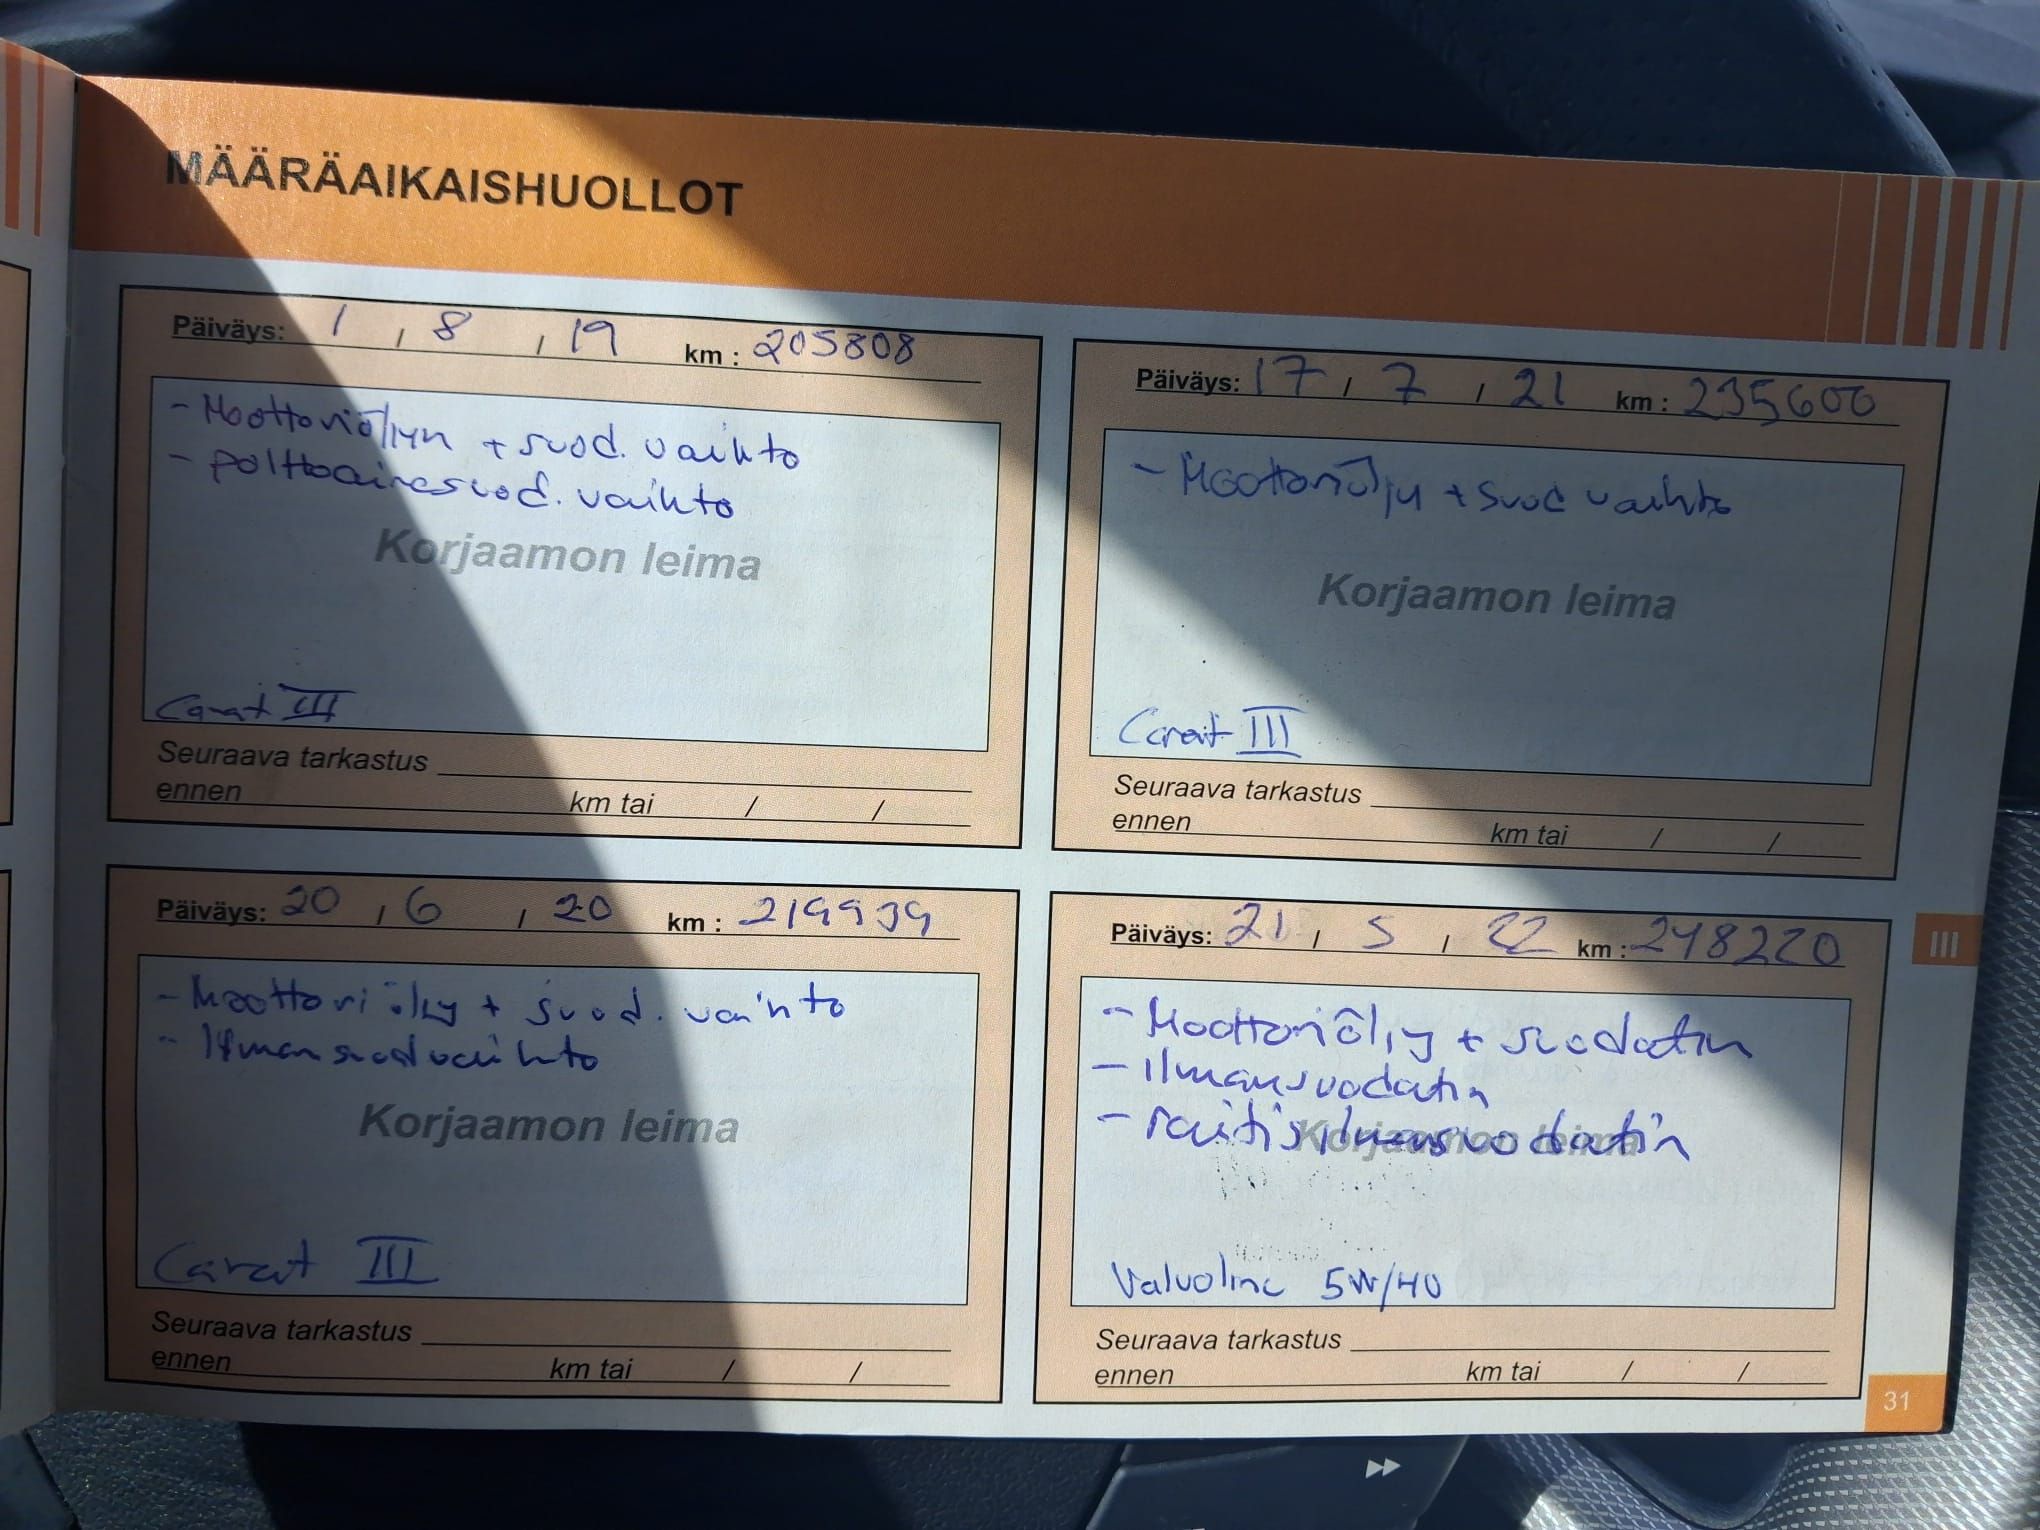 MÄÄRÄAIKAISHUOLLOT
Päiväys: 1 / 8 / 19 km: 205808
- Moottoriöljyn + suod. vaihto
- polttoainesuod. vaihto
Korjaamon leima
Carat III
Seuraava tarkastus
ennen km tai / /
Päiväys: 17 / 7 / 21 km: 235600
- Moottoriöljy + suod vaihto
Korjaamon leima
Carat III
Seuraava tarkastus
ennen km tai / /
Päiväys: 20 / 6 / 20 km: 219939
- Moottoriöljy + suod. vaihto
- Ilmansuod vaihto
Korjaamon leima
Carat III
Seuraava tarkastus
ennen km tai / /
Päiväys: 21 / 5 / 22 km: 248220
- Moottoriöljy + suodatin
- Ilmansuodatin
- raitisilmansuodatin
Korjaamon leima
Valvoline 5W/40
Seuraava tarkastus
ennen km tai / /
III
31